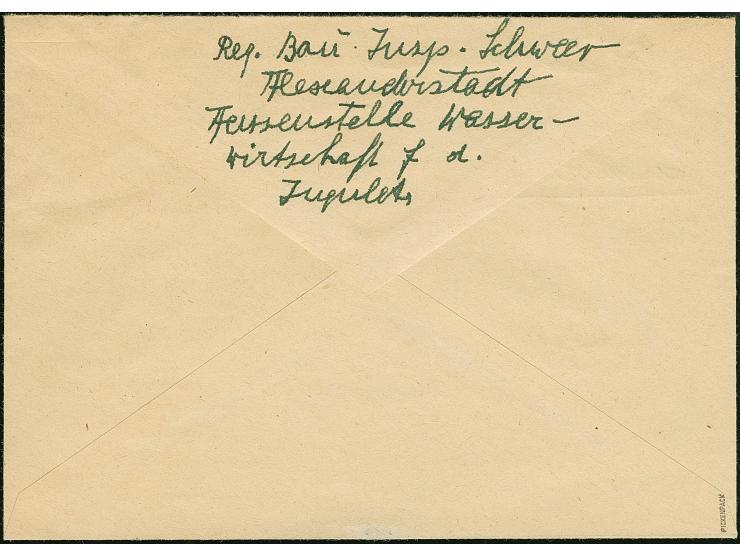 Reg. Baü. Insp. Schweer
Alexanderstadt
Aussenstelle Wasser-
wirtschaft f d.
Ingulets
PICKENPACK